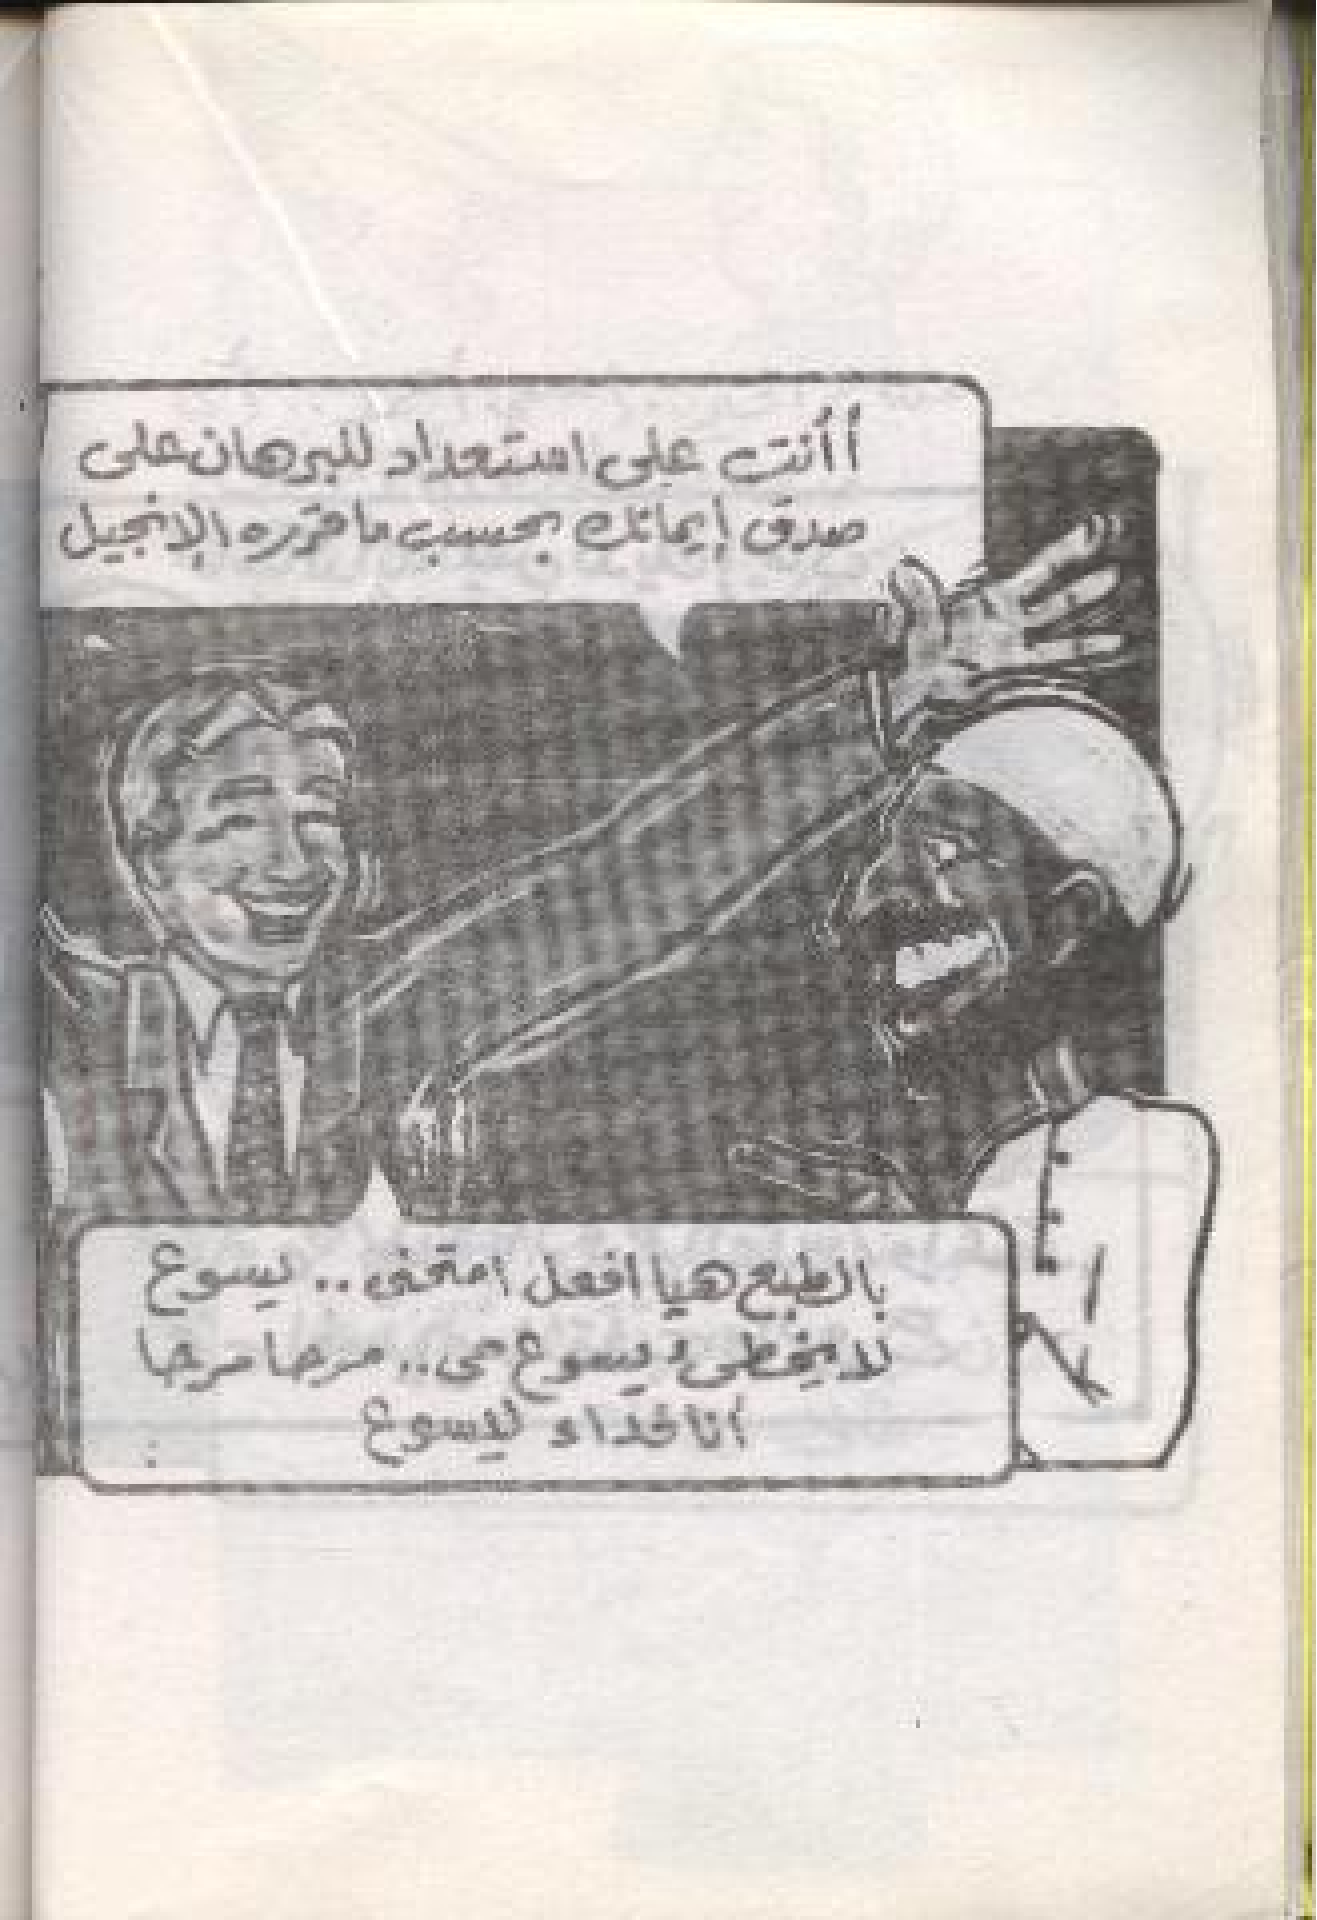 أأنت على استعداد للبرهان على
صدق إيمانك بحسب ما قرره الإنجيل
بالطبع هيا افعل امتحنى .. ليسوع
لا يخطىء يسوع حى .. مرحا مرحا
أنا فداء ليسوع